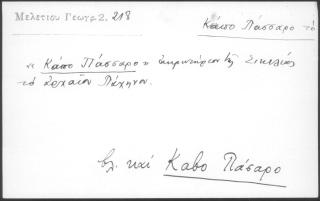 Μελετίου Γεωγρ 2. 218
Κάπο Πάσσαρο τὸ
"Κάπο Πάσσαρο" ἀκρωτήριον τῆς Σικελίας
τὸ ἀρχαῖον Πάχηνον.
βλ. καί Καβο Πάσαρο